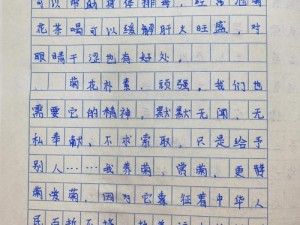 可以帮助身体排毒，经常泡菊
花茶喝可以缓解肝火旺盛，对
眼睛干涩也有好处。
菊花朴素，顽强。我们也
需要它的精神，默默无闻，无
私奉献，不求索取，只是给予
别人……我养菊，赏菊，更赞
菊爱菊，因为它象征着中华人
民